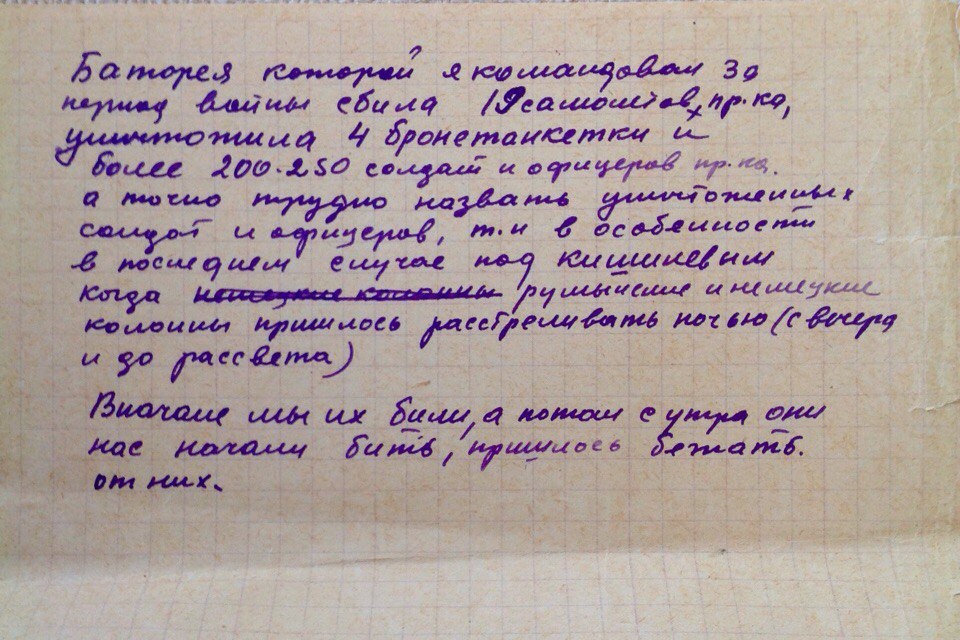 Баторея которой я командовал за
период войны сбила 19 самолётов пр-ка,
уничтожила 4 бронетанкетки и
более 200-250 солдат и офицеров пр-ка.
а точно трудно назвать уничтоженных
солдат и офицеров, т.к в особенности
в последнем случае под кишиневым
когда немецкие колонны румынские и немецкие
колонны пришлось расстреливать ночью (с вечера
и до рассвета)
Вначале мы их били, а потом с утра они
нас начали бить, пришлось бежать.
от них.